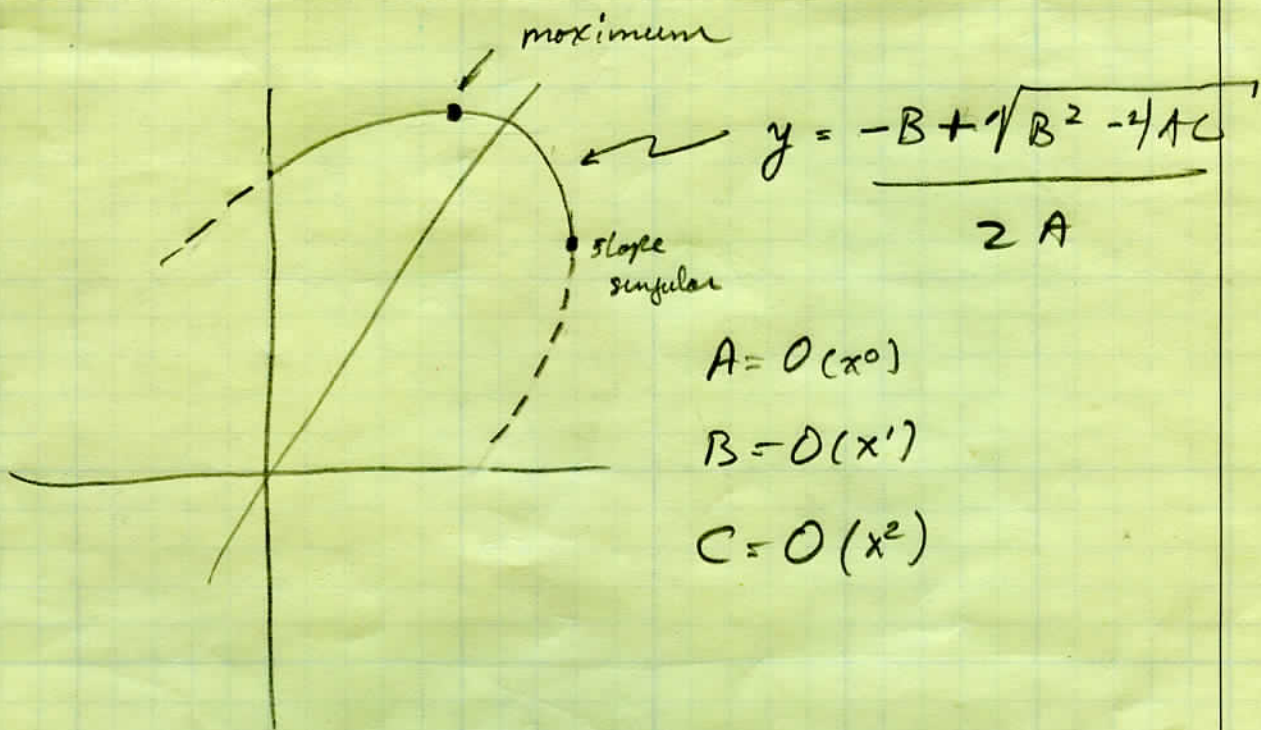 maximum
y = -B + √B² - 4AC
2A
slope
singular
A = O(x⁰)
B = O(x¹)
C = O(x²)